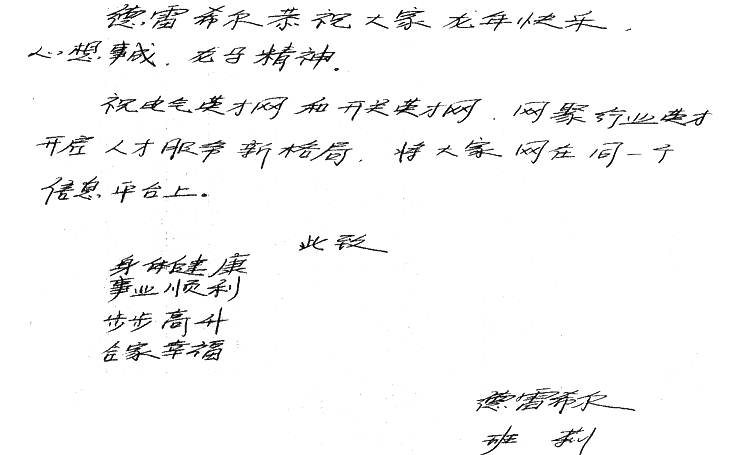 德雷希尔恭祝大家龙年快乐，
心想事成，龙子精神。
祝电气英才网和开关英才网，网聚行业英才
开启人才服务新格局，将大家网在同一个
信息平台上。
此致
身体健康
事业顺利
步步高升
合家幸福
德雷希尔
班莉